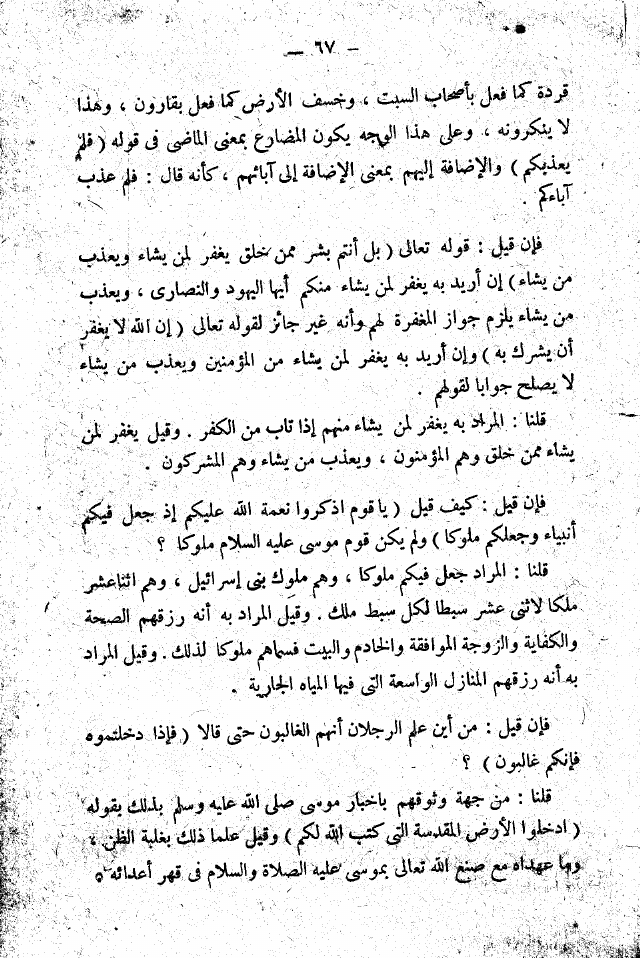 – ٦٧ –
قردة كما فعل بأصحاب السبت ، وخسف الأرض كما فعل بقارون ، وهذا
لا ينكرونه ، وعلى هذا الوجه يكون المضارع بمعنى الماضى فى قوله ( فلم
يعذبكم ) والإضافة إليهم بمعنى الإضافة إلى آبائهم ، كأنه قال : فلم عذب
آباءكم .
فإن قيل : قوله تعالى ( بل أنتم بشر ممن خلق يغفر لمن يشاء ويعذب
من يشاء ) إن أريد به يغفر لمن يشاء منكم أيها اليهود والنصارى ، ويعذب
من يشاء يلزم جواز المغفرة لهم وأنه غير جائز لقوله تعالى ( إن الله لا يغفر
أن يشرك به ) وإن أريد به يغفر لمن يشاء من المؤمنين ويعذب من يشاء
لا يصلح جوابا لقولهم .
قلنا : المراد به يغفر لمن يشاء منهم إذا تاب من الكفر . وقيل يغفر لمن
يشاء ممن خلق وهم المؤمنون ، ويعذب من يشاء وهم المشركون .
فإن قيل : كيف قيل ( ياقوم اذكروا نعمة الله عليكم إذ جعل فيكم
أنبياء وجعلكم ملوكا ) ولم يكن قوم موسى عليه السلام ملوكا ؟
قلنا : المراد جعل فيكم ملوكا ، وهم ملوك بنى إسرائيل ، وهم اثناعشر
ملكا لاثنى عشر سبطا لكل سبط ملك . وقيل المراد به أنه رزقهم الصحة
والكفاية والزوجة الموافقة والخادم والبيت فسماهم ملوكا لذلك . وقيل المراد
به أنه رزقهم المنازل الواسعة التى فيها المياه الجارية .
فإن قيل : من أين علم الرجلان أنهم الغالبون حتى قالا ( فإذا دخلتموه
فإنكم غالبون ) ؟
قلنا : من جهة وثوقهم باخبار موسى صلى الله عليه وسلم بذلك بقوله
( ادخلوا الأرض المقدسة التى كتب الله لكم ) وقيل علما ذلك بغلبة الظن ،
وما عهداه مع صنع الله تعالى بموسى عليه الصلاة والسلام فى قهر أعدائه .